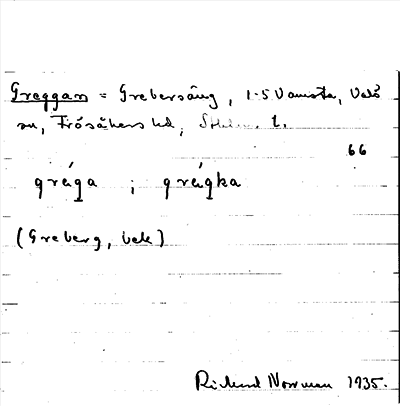 Greggan = Grebersäng, 1-5 Vamsta, Valö
sn, Frösåkers hd, Sthlms l.
66
gräga ; grägka
(Greberg, bek)
Richard Norrman 1935.